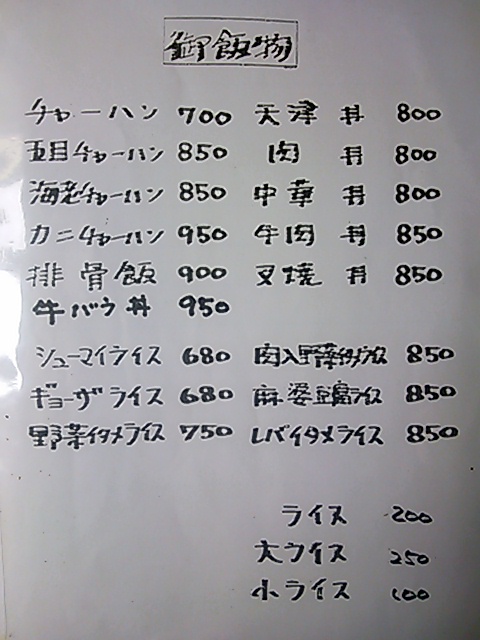 御飯物
チャーハン 700 天津丼 800
五目チャーハン 850 肉丼 800
海老チャーハン 850 中華丼 800
カニチャーハン 950 牛肉丼 850
排骨飯 900 叉焼丼 850
牛バラ丼 950
シューマイライス 680 肉入野菜イタメライス 850
ギョーザライス 680 麻婆豆腐ライス 850
野菜イタメライス 750 レバイタメライス 850
ライス 200
大ライス 250
小ライス 100